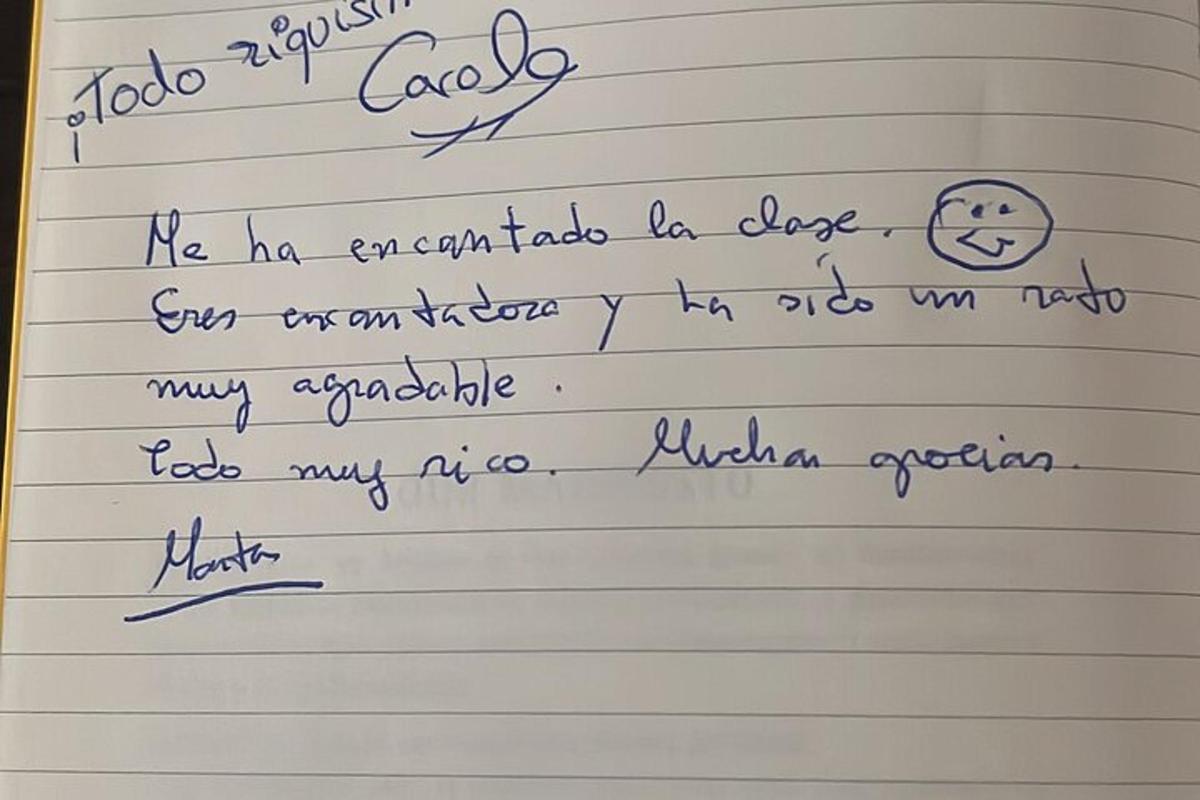 ¡Todo riquísim
Carola
Me ha encantado la clase.
Eres encantadora y ha sído un rato
muy agradable.
Todo muy rico. Muchas gracias.
Marta